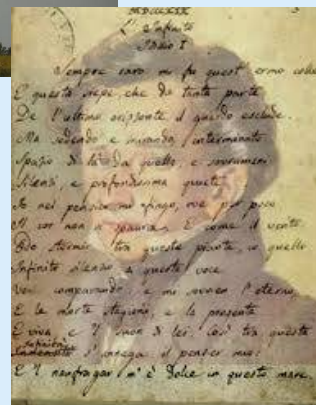 MDCCCXIX
L'Infinito
Idillio I
Sempre caro mi fu quest'ermo colle
E questa siepe, che da tanta parte
De l'ultimo orizzonte il guardo esclude.
Ma sedendo e mirando, interminato
Spazio di là da quello, e sovrumani
Silenzi, e profondissima quiete
Io nel pensier mi fingo, ove per poco
Il cor non si spaura. E come il vento
Odo stormir tra queste piante, io quello
Infinito silenzio a questa voce
Vo comparando: e mi sovvien l'eterno,
E le morte stagioni, e la presente
E viva, e 'l suon di lei. Così tra questa
Infinità
Immensità s'annega il pensier mio:
E 'l naufragar m'è dolce in questo mare.